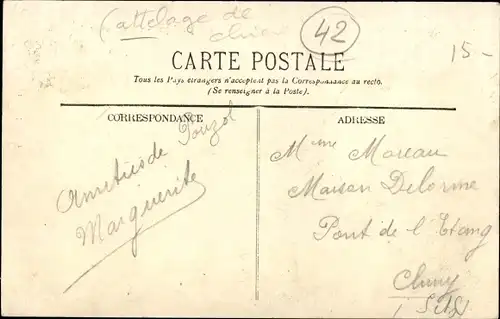 (attelage de
chien
42
15-
CARTE POSTALE
Tous les Pays étrangers n'acceptent pas la Correspondance au recto.
(Se renseigner à la Poste).
CORRESPONDANCE
Amitiés de Pouzol
Marguerite
ADRESSE
Mme Moreau
Maison Delorme
Pont de l'Etang
Cluny
S & L